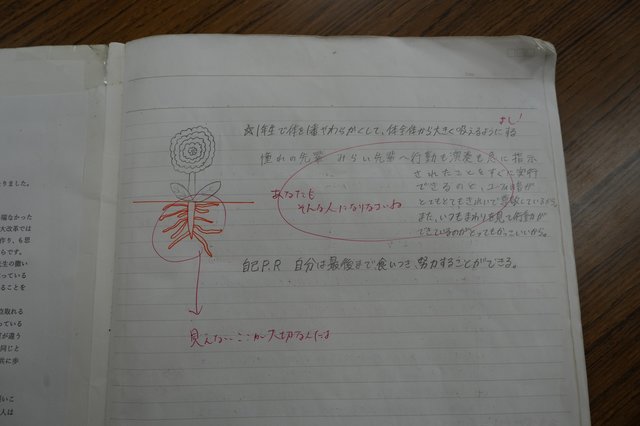 よし!
1年生で体を1番やわらかくして、体全体から大きく吸えるようにする
憧れの先輩 みらい先輩へ行動も演奏も常に指示
されたことをすぐに実行
できるのと、
とてもとてもきれいで尊敬しているから。
また、いつもまわりを見て行動が
できているのがとってもかっこいいから。
あなたも
そんな人になりなさいね
自己P.R 自分は最後まで食いつき、努力することができる。
見えないここが大切なんだよ
なりました。
端なかった
大改革では
作り、も思
らです。
先生の働い
っている
ることを
点取れる
っている
が違う
同じと
共に歩
思いこ
人は